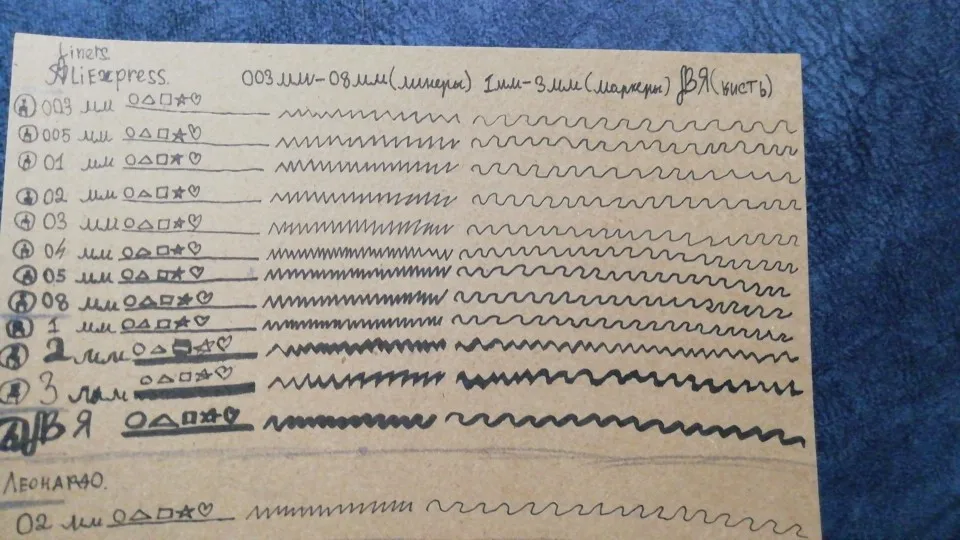 finers
AliExpress.
003 мм-08мм(линеры) 1мм-3мм(маркеры) ВЯ(кисть)
003 мм
005 мм
01 мм
02 мм
03 мм
04 мм
05 мм
08 мм
1 мм
2 мм
3 мм
ВЯ
Леонардо.
02 мм